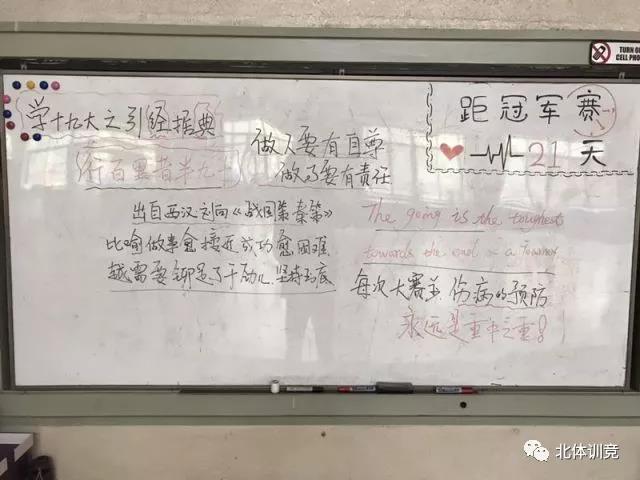 学十九大之引经据典
行百里者半九十
出自西汉刘向《战国策·秦策》
比喻做事愈接近成功愈困难
越需要铆足了干劲儿坚持到底
做人要有自尊
做事要有责任
The going is the toughest
towards the end of a journey
每次大赛前,伤病的预防
永远是重中之重!
距冠军赛
21天
TURN O
CELL PHO
北体训竞